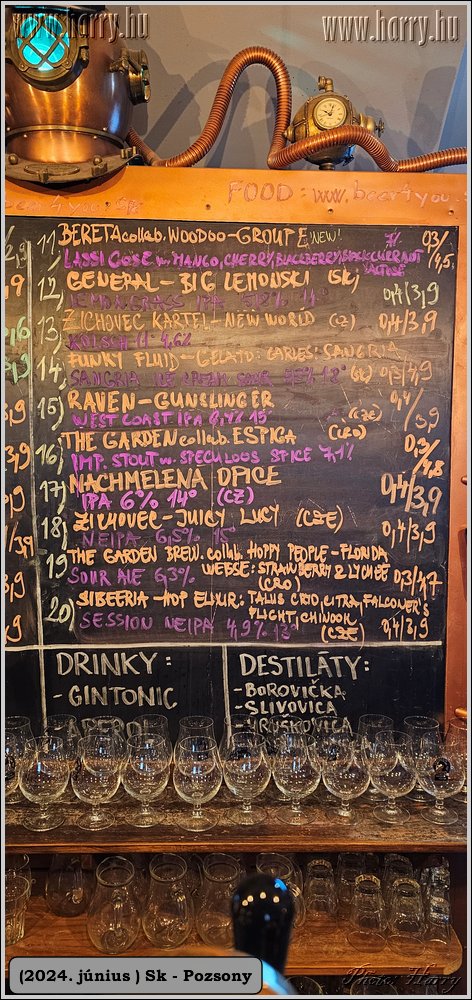 www.harry.hu www.harry.hu
FOOD: www.beer4you.s
beer4you.sk
11) BERETA collab. WOODOO-GROUPE NEW! 0,3/
LASSI GOSE w. MANGO, CHERRY, BLACKBERRY, BLACKCURRANT 7% 4,5
LACTOSE
12) GENERAL-BIG LEMONSKI (Sk)
LEMONGRASS IPA 5,8% 0,4/3,9
13) ZICHOVEC KARTEL-NEW WORLD (CZ) 0,4/3,9
KOLSCH 11° 4,6%
14) FUNKY FLUID-GELATO: SANGRIA
SANGRIA ICE CREAM SOUR 0,3/4,9
15) RAVEN-GUNSLINGER 0,4/
WEST COAST IPA 6,4% 15° (CZE) 3,9
16) THE GARDEN collab. ESPIGA (CRO) 0,3/
IMP. STOUT w. SPECULOOS SPICE 7,1% 4,8
17) NACHMELENÁ OPICE 0,4/3,9
IPA 6% 14° (CZ)
18) ZICHOVEC-JUICY LUCY (CZE)
NEIPA 6,5% 15° 0,4/3,9
19 THE GARDEN BREW. collab. HOPPY PEOPLE-FLORIDA
WEISSE: STRAWBERRY & LYCHEE
SOUR ALE 6,3% (CRO) 0,3/4,7
20) SIBEERIA-HOP ELIXIR: TALUS CRYO, CITRA, FALCONER'S
FLIGHT, CHINOOK
SESSION NEIPA 4,9% 13° (CZE) 0,4/3,9
DRINKY:
-GINTONIC
-APEROL
DESTILÁTY:
-BOROVIČKA
-SLIVOVICA
-HRUŠKOVICA
(2024. június ) Sk - Pozsony
Photo: Harry